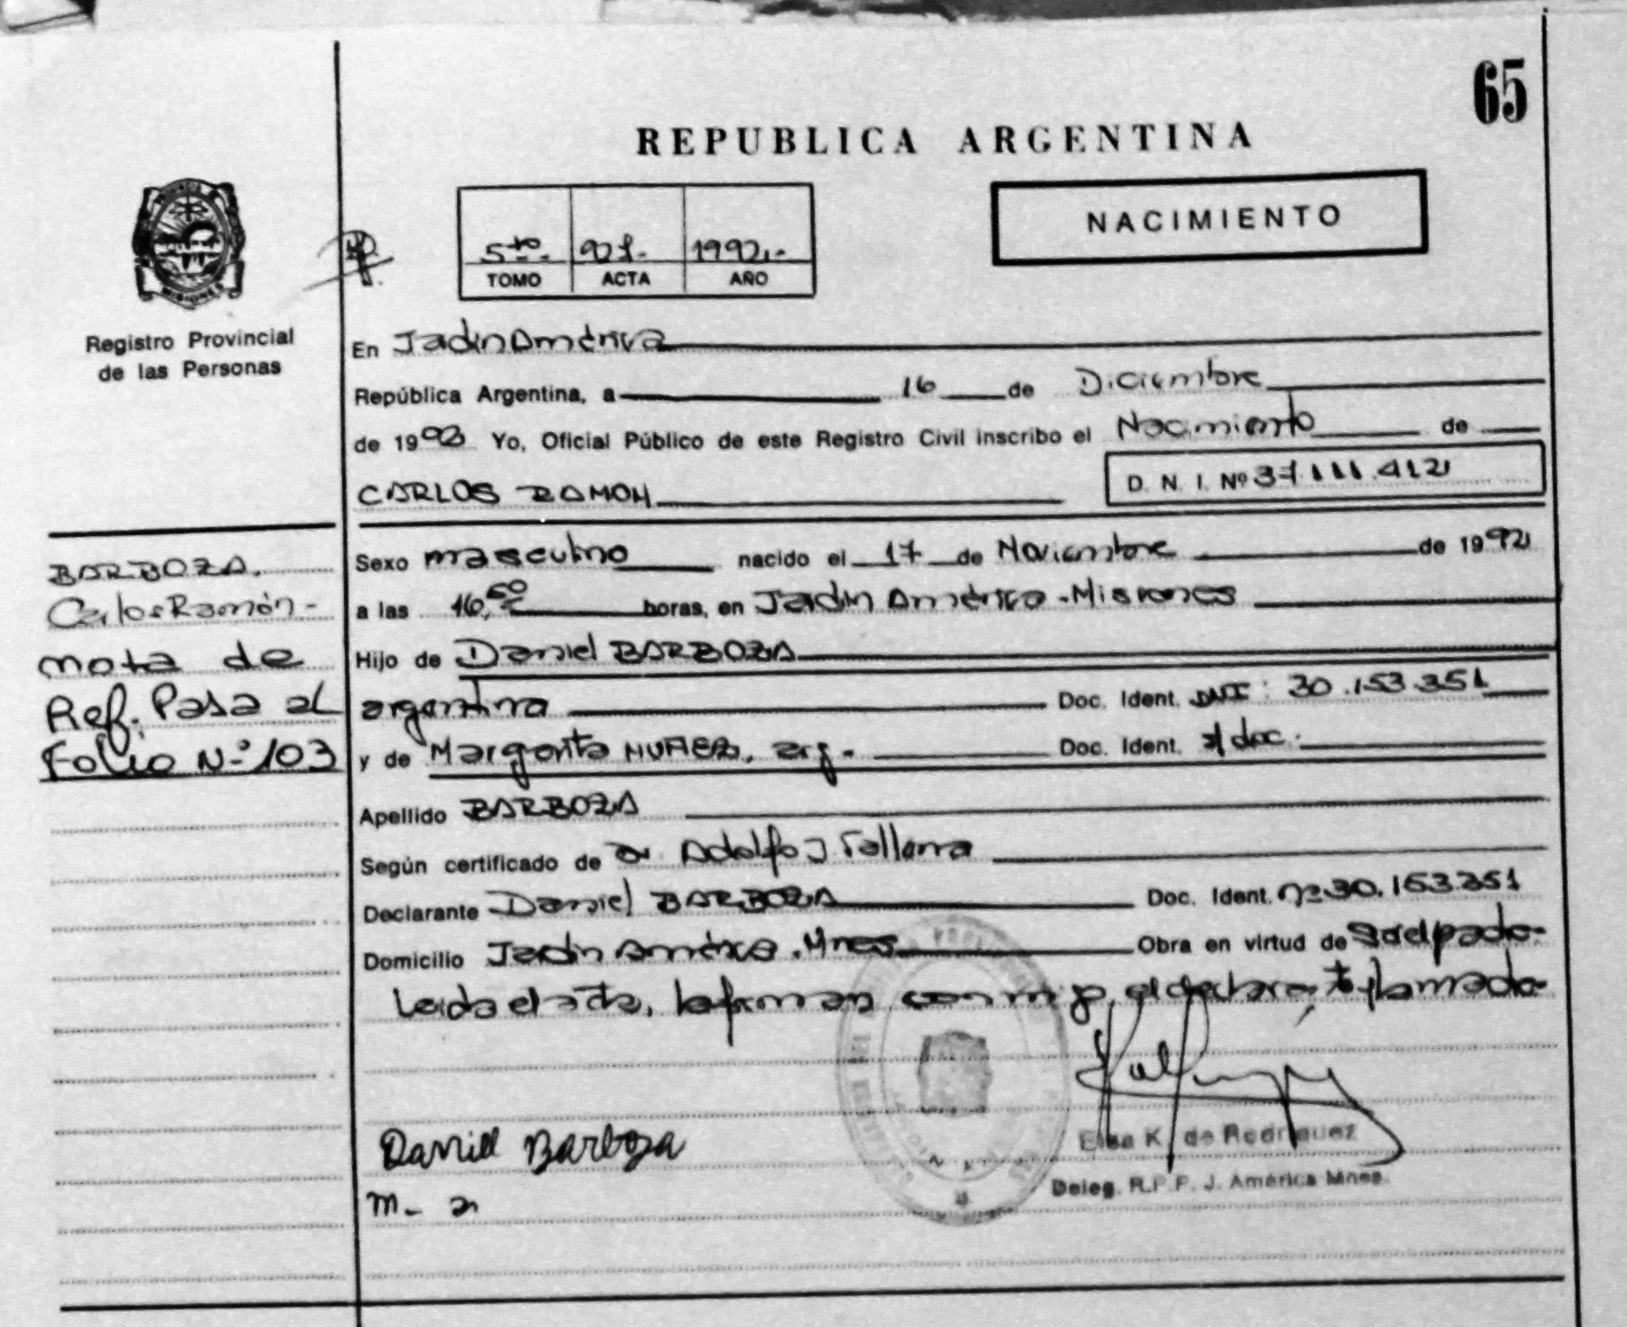 65
REPUBLICA ARGENTINA
NACIMIENTO
5to.- 921.- 1992.-
TOMO ACTA AÑO
MISIONES
Registro Provincial
de las Personas
En Jadin América
República Argentina, a 16 de Diciembre
de 1992 Yo, Oficial Público de este Registro Civil inscribo el Nacimiento de
CARLOS RAMON
D. N. I. Nº 37.111.412
BARBOZA.
Carlos Ramón-
nota de
Ref. Pasa al
Folio Nº 103
Sexo masculino nacido el 17 de Noviembre de 1992
a las 16,50 horas, en Jadin América - Misiones
Hijo de Daniel BARBOZA
argentina Doc. Ident. DNI: 30.153.351
y de Margarita MUÑEZ, arg.- Doc. Ident. s/doc.
Apellido BARBOZA
Según certificado de Dr Adolfo J
Declarante Daniel BARBOZA Doc. Ident. nº 30.153.351
Domicilio Jadin América. Mnes Obra en virtud de
Leida el acta, la firman conmigo, el declarante
Daniel Barboza
Elsa K. de Rodriguez
Deleg. R.P.P. J. América Mnes.